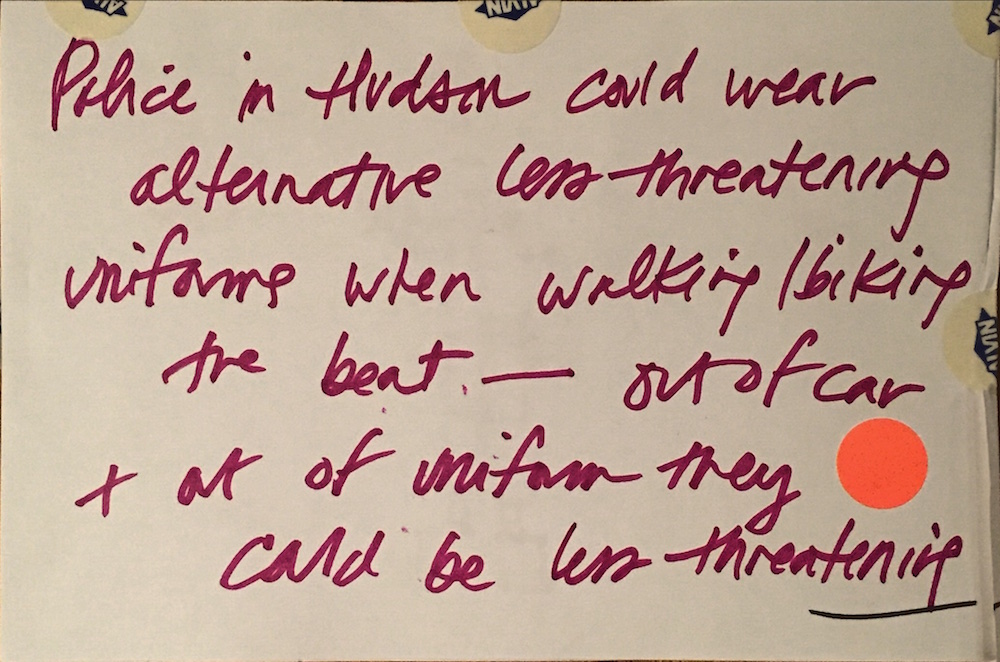 ALVIN
ALVIN
Police in Hudson could wear
alternative less-threatening
uniforms when walking/biking
the beat — out of car
+ out of uniform they
could be less threatening
ALVIN